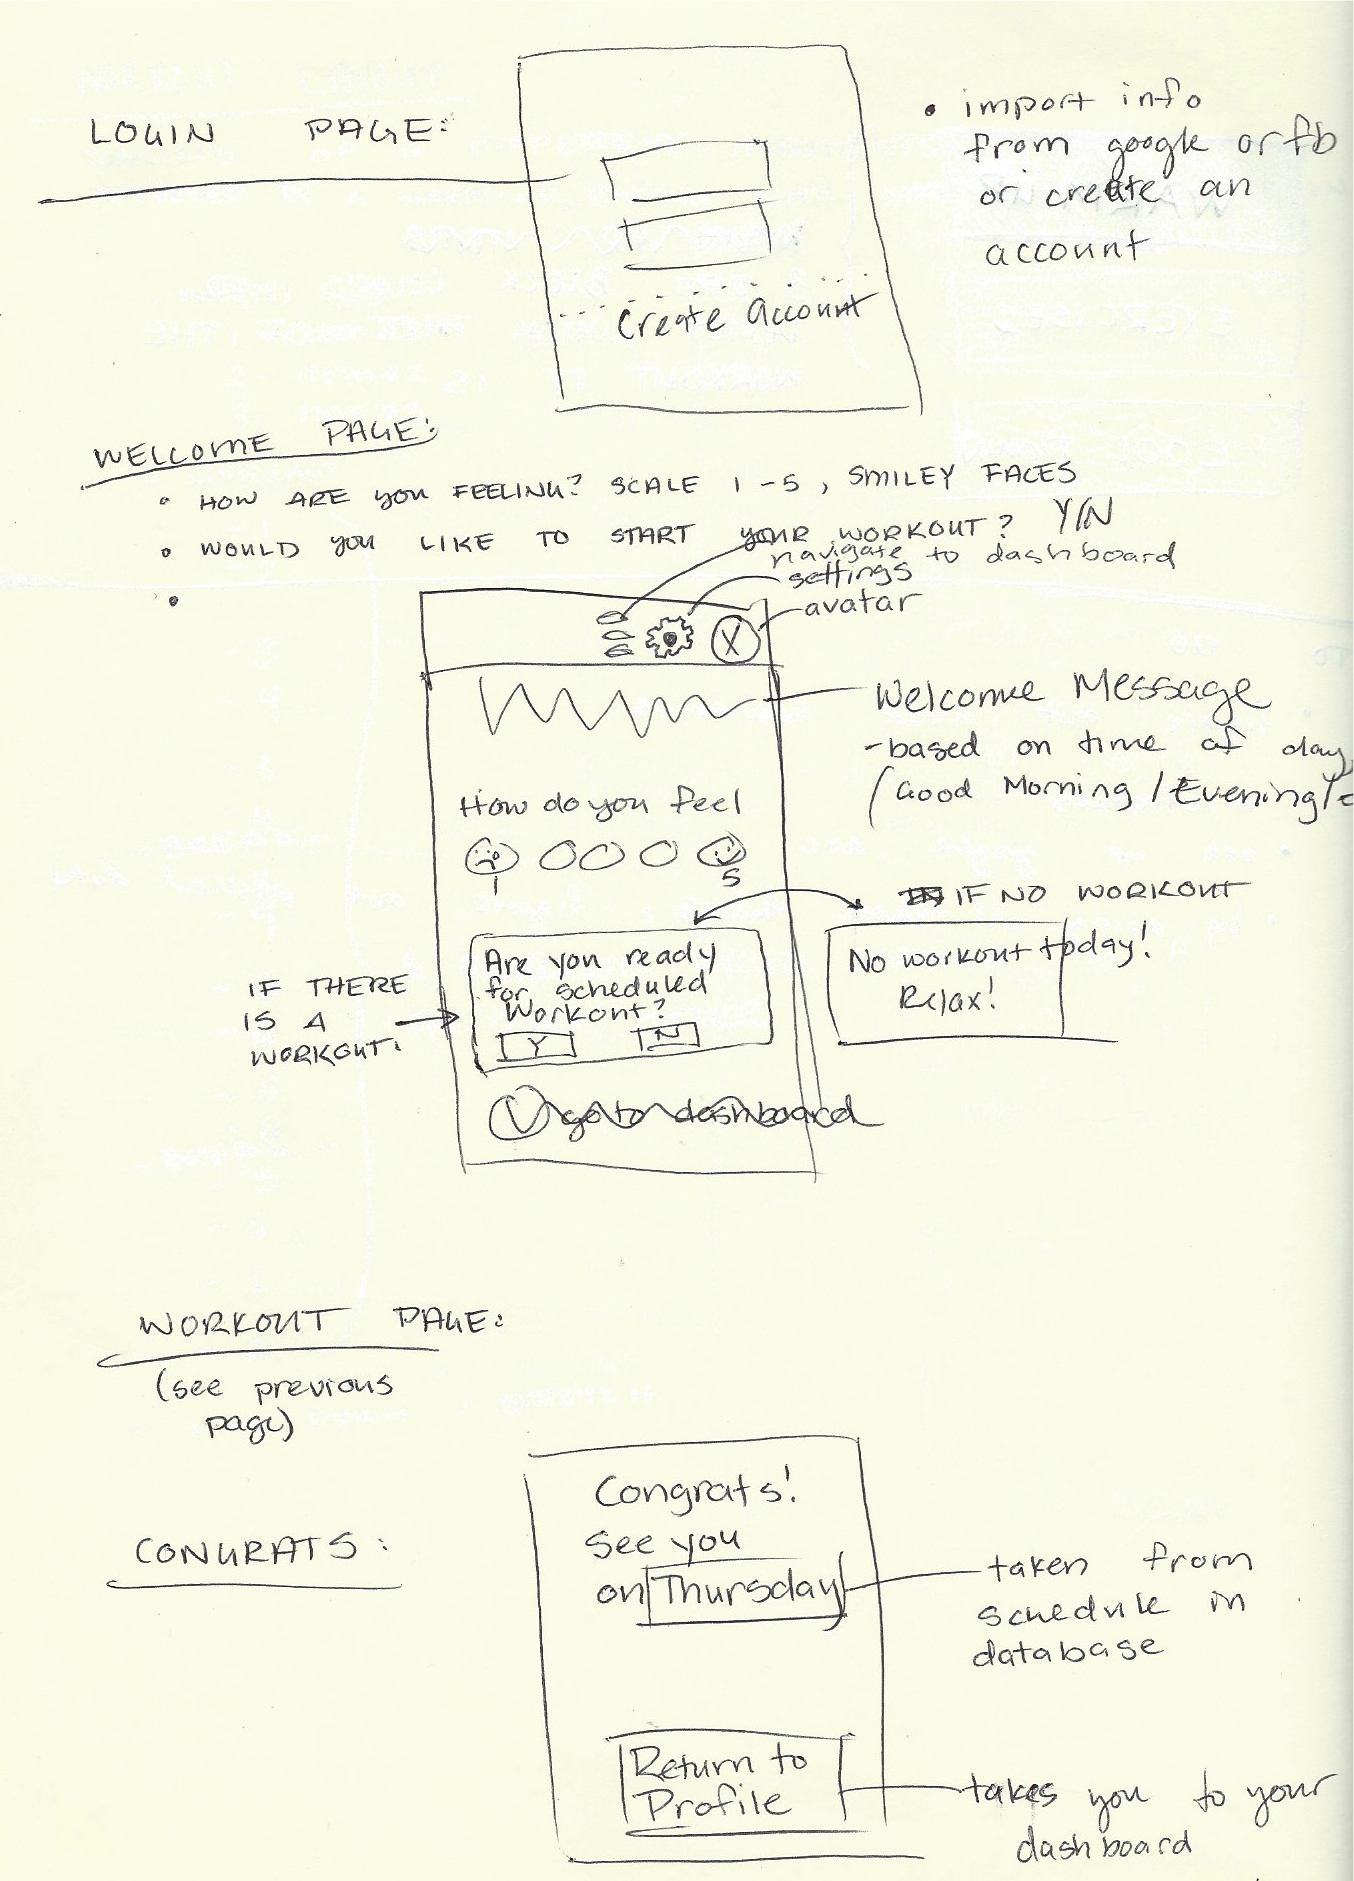 LOGIN PAGE:
• import info
from google or fb
or create an
account
Create Account
WELCOME PAGE:
• HOW ARE YOU FEELING? SCALE 1-5, SMILEY FACES
• WOULD YOU LIKE TO START YOUR WORKOUT? Y/N
•
navigate to dashboard
settings
avatar
X
Welcome Message
- based on time of day
(Good Morning / Evening/
How do you feel
1 5
IF NO WORKOUT
Are you ready
for scheduled
Workout?
Y N
No workout today!
Relax!
IF THERE
IS A
WORKOUT.
go to dashboard
WORKOUT PAGE:
(see previous
page)
CONGRATS:
Congrats!
See you
on Thursday
taken from
schedule in
database
Return to
Profile
takes you to your
dashboard